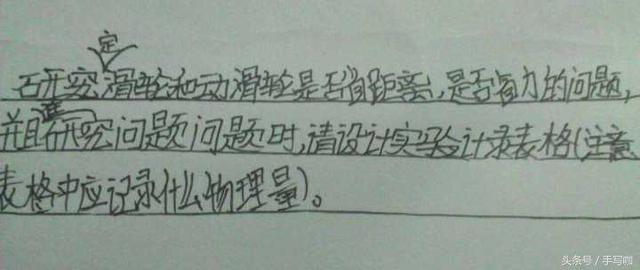 研究定滑轮和动滑轮是否省距离,是否省力的问题,
并且在研究问题问题时,请设计实验计录表格(注意
表格中应记录什么物理量)。
头条号 / 手写啦